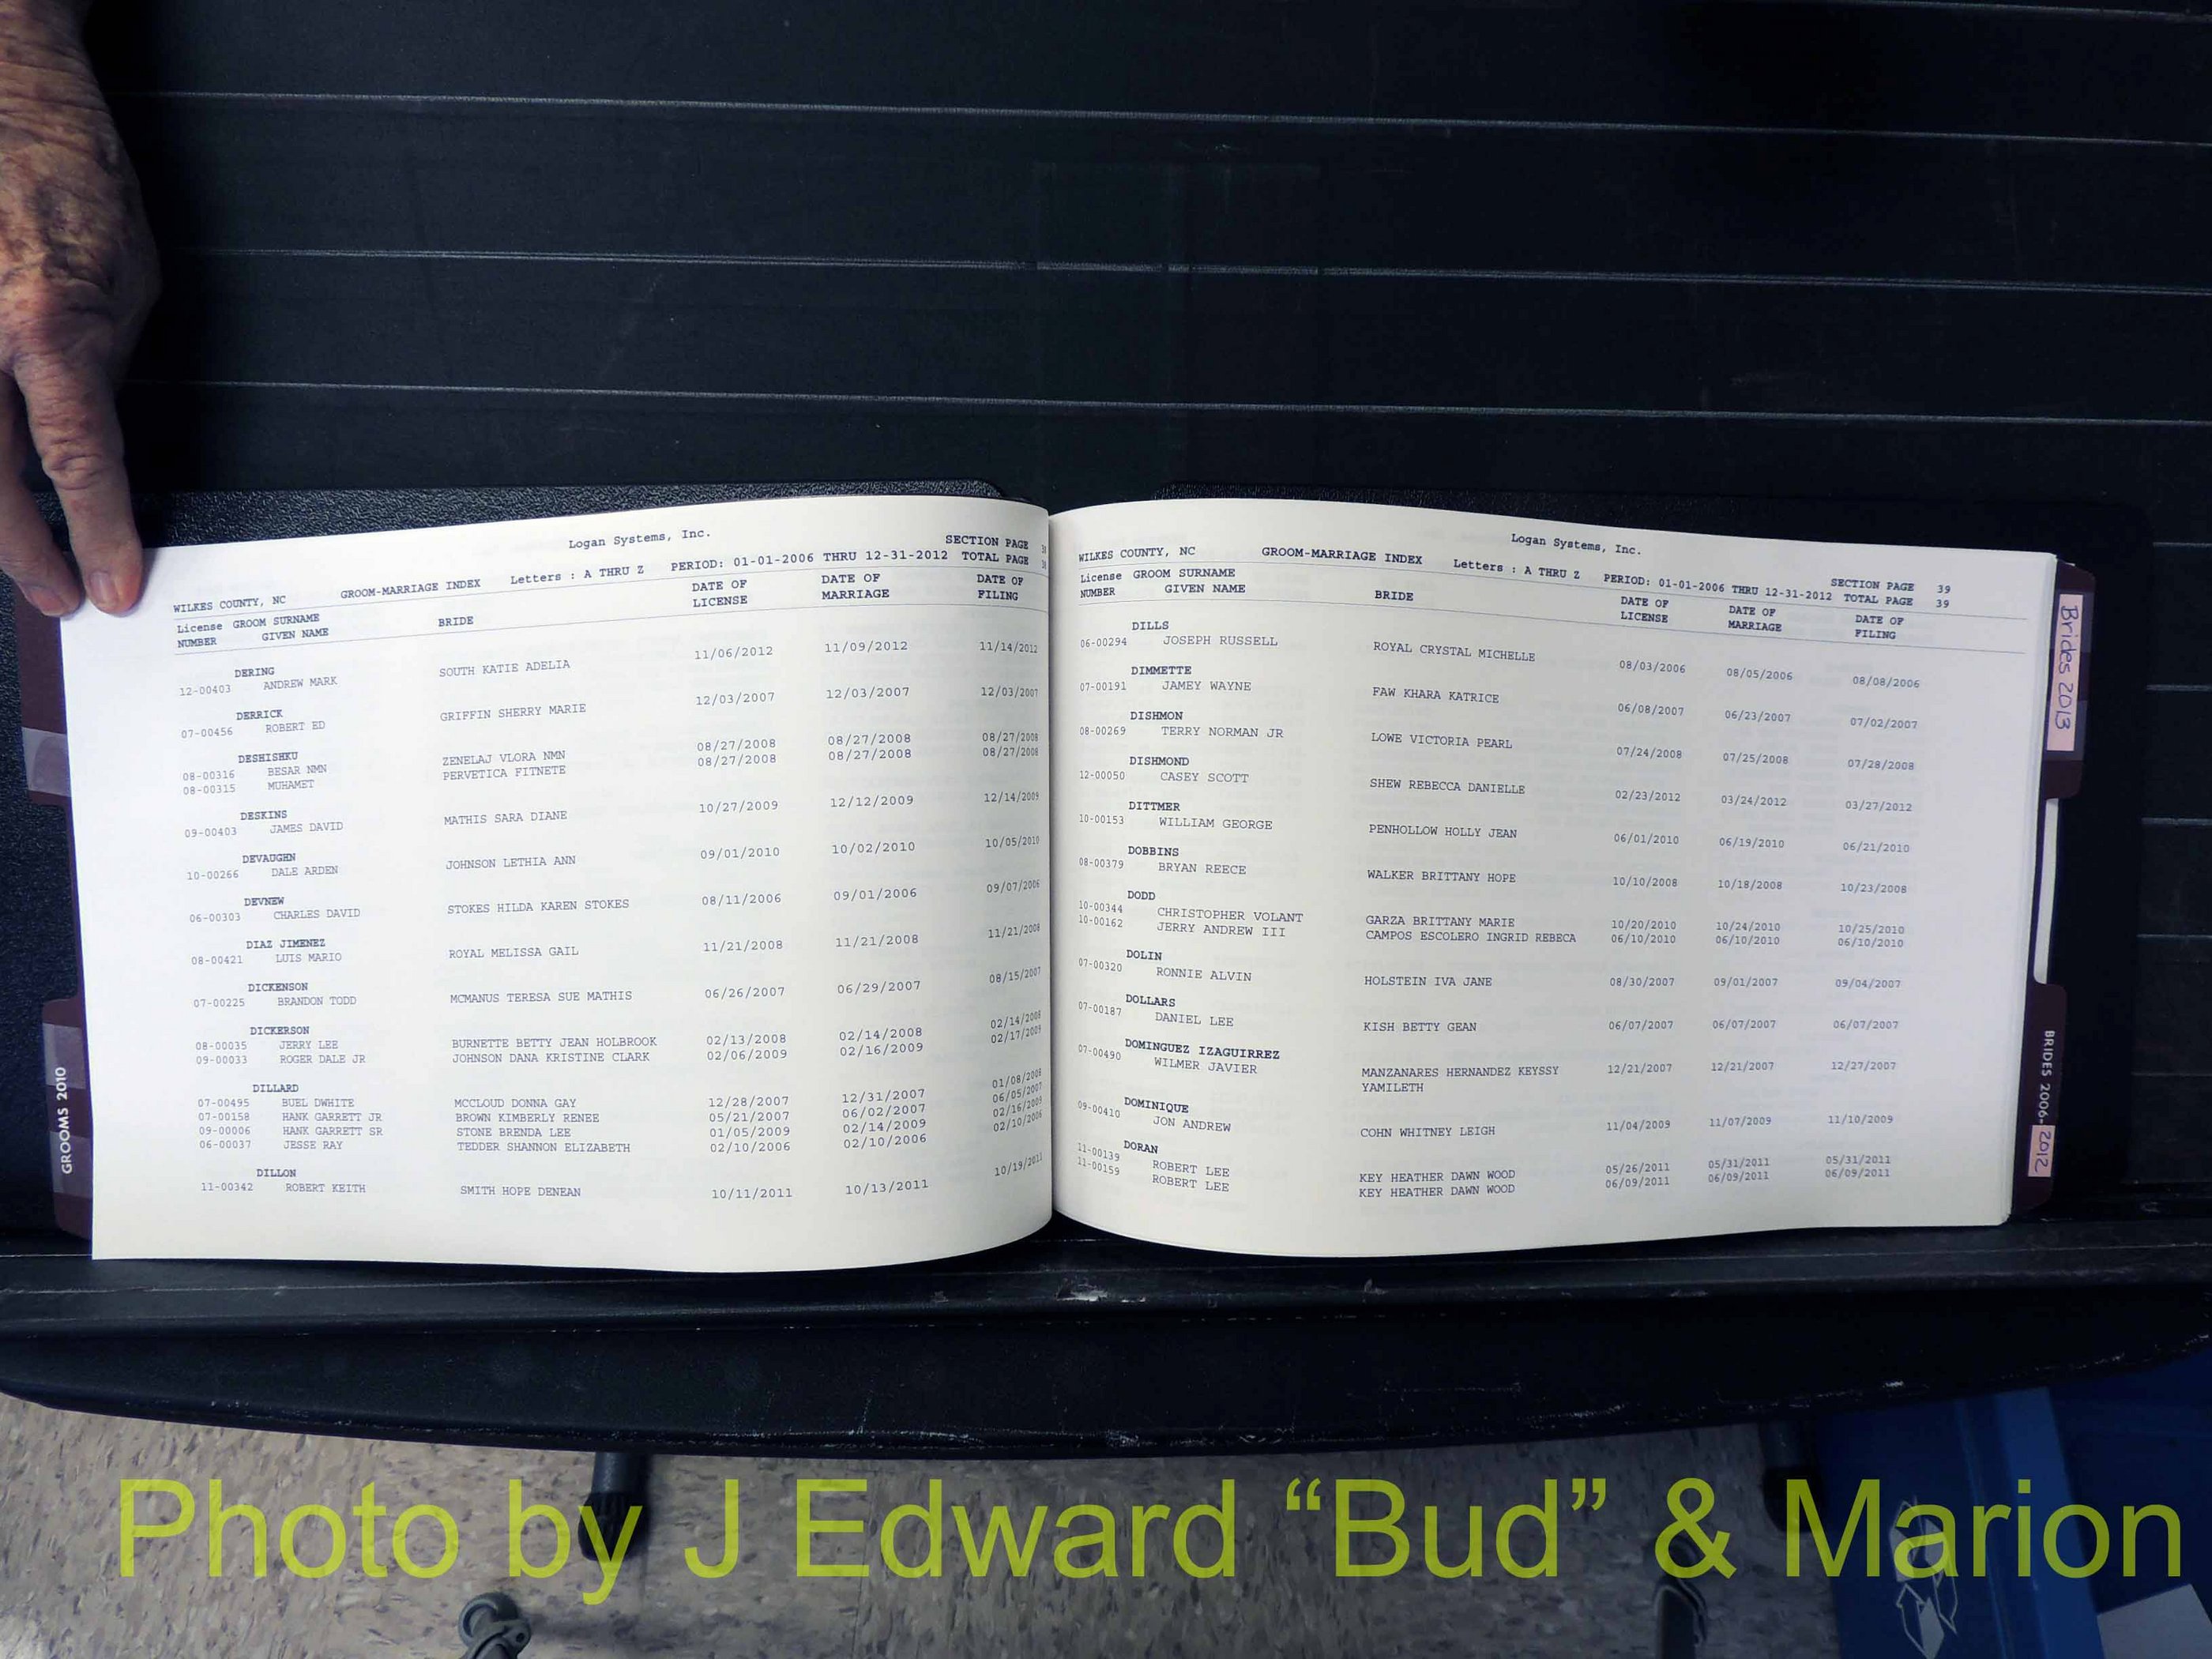 Logan Systems, Inc.
SECTION PAGE 38
WILKES COUNTY, NC GROOM-MARRIAGE INDEX Letters : A THRU Z PERIOD: 01-01-2006 THRU 12-31-2012 TOTAL PAGE 38
License GROOM SURNAME BRIDE DATE OF DATE OF DATE OF
NUMBER GIVEN NAME LICENSE MARRIAGE FILING
DERING
12-00403 ANDREW MARK SOUTH KATIE ADELIA 11/06/2012 11/09/2012 11/14/2012
DERRICK
07-00456 ROBERT ED GRIFFIN SHERRY MARIE 12/03/2007 12/03/2007 12/03/2007
DESHISHKU
08-00316 BESAR NMN ZENELAJ VLORA NMN 08/27/2008 08/27/2008 08/27/2008
08-00315 MUHAMET PERVETICA FITNETE 08/27/2008 08/27/2008 08/27/2008
DESKINS
09-00403 JAMES DAVID MATHIS SARA DIANE 10/27/2009 12/12/2009 12/14/2009
DEVAUGHN
10-00266 DALE ARDEN JOHNSON LETHIA ANN 09/01/2010 10/02/2010 10/05/2010
DEVNEW
06-00303 CHARLES DAVID STOKES HILDA KAREN STOKES 08/11/2006 09/01/2006 09/07/2006
DIAZ JIMENEZ
08-00421 LUIS MARIO ROYAL MELISSA GAIL 11/21/2008 11/21/2008 11/21/2008
DICKENSON
07-00225 BRANDON TODD MCMANUS TERESA SUE MATHIS 06/26/2007 06/29/2007 08/15/2007
DICKERSON
08-00035 JERRY LEE BURNETTE BETTY JEAN HOLBROOK 02/13/2008 02/14/2008 02/14/2008
09-00033 ROGER DALE JR JOHNSON DANA KRISTINE CLARK 02/06/2009 02/16/2009 02/17/2009
DILLARD
07-00495 BUEL DWHITE MCCLOUD DONNA GAY 12/28/2007 12/31/2007 01/08/2008
07-00158 HANK GARRETT JR BROWN KIMBERLY RENEE 05/21/2007 06/02/2007 06/05/2007
09-00006 HANK GARRETT SR STONE BRENDA LEE 01/05/2009 02/14/2009 02/16/2009
06-00037 JESSE RAY TEDDER SHANNON ELIZABETH 02/10/2006 02/10/2006 02/10/2006
DILLON
11-00342 ROBERT KEITH SMITH HOPE DENEAN 10/11/2011 10/13/2011 10/19/2011
GROOMS 2010
Logan Systems, Inc.
SECTION PAGE 39
WILKES COUNTY, NC GROOM-MARRIAGE INDEX Letters : A THRU Z PERIOD: 01-01-2006 THRU 12-31-2012 TOTAL PAGE 39
License GROOM SURNAME BRIDE DATE OF DATE OF DATE OF
NUMBER GIVEN NAME LICENSE MARRIAGE FILING
DILLS
06-00294 JOSEPH RUSSELL ROYAL CRYSTAL MICHELLE 08/03/2006 08/05/2006 08/08/2006
DIMMETTE
07-00191 JAMEY WAYNE FAW KHARA KATRICE 06/08/2007 06/23/2007 07/02/2007
DISHMON
08-00269 TERRY NORMAN JR LOWE VICTORIA PEARL 07/24/2008 07/25/2008 07/28/2008
DISHMOND
12-00050 CASEY SCOTT SHEW REBECCA DANIELLE 02/23/2012 03/24/2012 03/27/2012
DITTMER
10-00153 WILLIAM GEORGE PENHOLLOW HOLLY JEAN 06/01/2010 06/19/2010 06/21/2010
DOBBINS
08-00379 BRYAN REECE WALKER BRITTANY HOPE 10/10/2008 10/18/2008 10/23/2008
DODD
10-00344 CHRISTOPHER VOLANT GARZA BRITTANY MARIE 10/20/2010 10/24/2010 10/25/2010
10-00162 JERRY ANDREW III CAMPOS ESCOLERO INGRID REBECA 06/10/2010 06/10/2010 06/10/2010
DOLIN
07-00320 RONNIE ALVIN HOLSTEIN IVA JANE 08/30/2007 09/01/2007 09/04/2007
DOLLARS
07-00187 DANIEL LEE KISH BETTY GEAN 06/07/2007 06/07/2007 06/07/2007
DOMINGUEZ IZAGUIRREZ
07-00490 WILMER JAVIER MANZANARES HERNANDEZ KEYSSY 12/21/2007 12/21/2007 12/27/2007
YAMILETH
DOMINIQUE
09-00410 JON ANDREW COHN WHITNEY LEIGH 11/04/2009 11/07/2009 11/10/2009
DORAN
11-00139 ROBERT LEE KEY HEATHER DAWN WOOD 05/26/2011 05/31/2011 05/31/2011
11-00159 ROBERT LEE KEY HEATHER DAWN WOOD 06/09/2011 06/09/2011 06/09/2011
Brides 2013
BRIDES 2006-2012
Photo by J Edward “Bud” & Marion